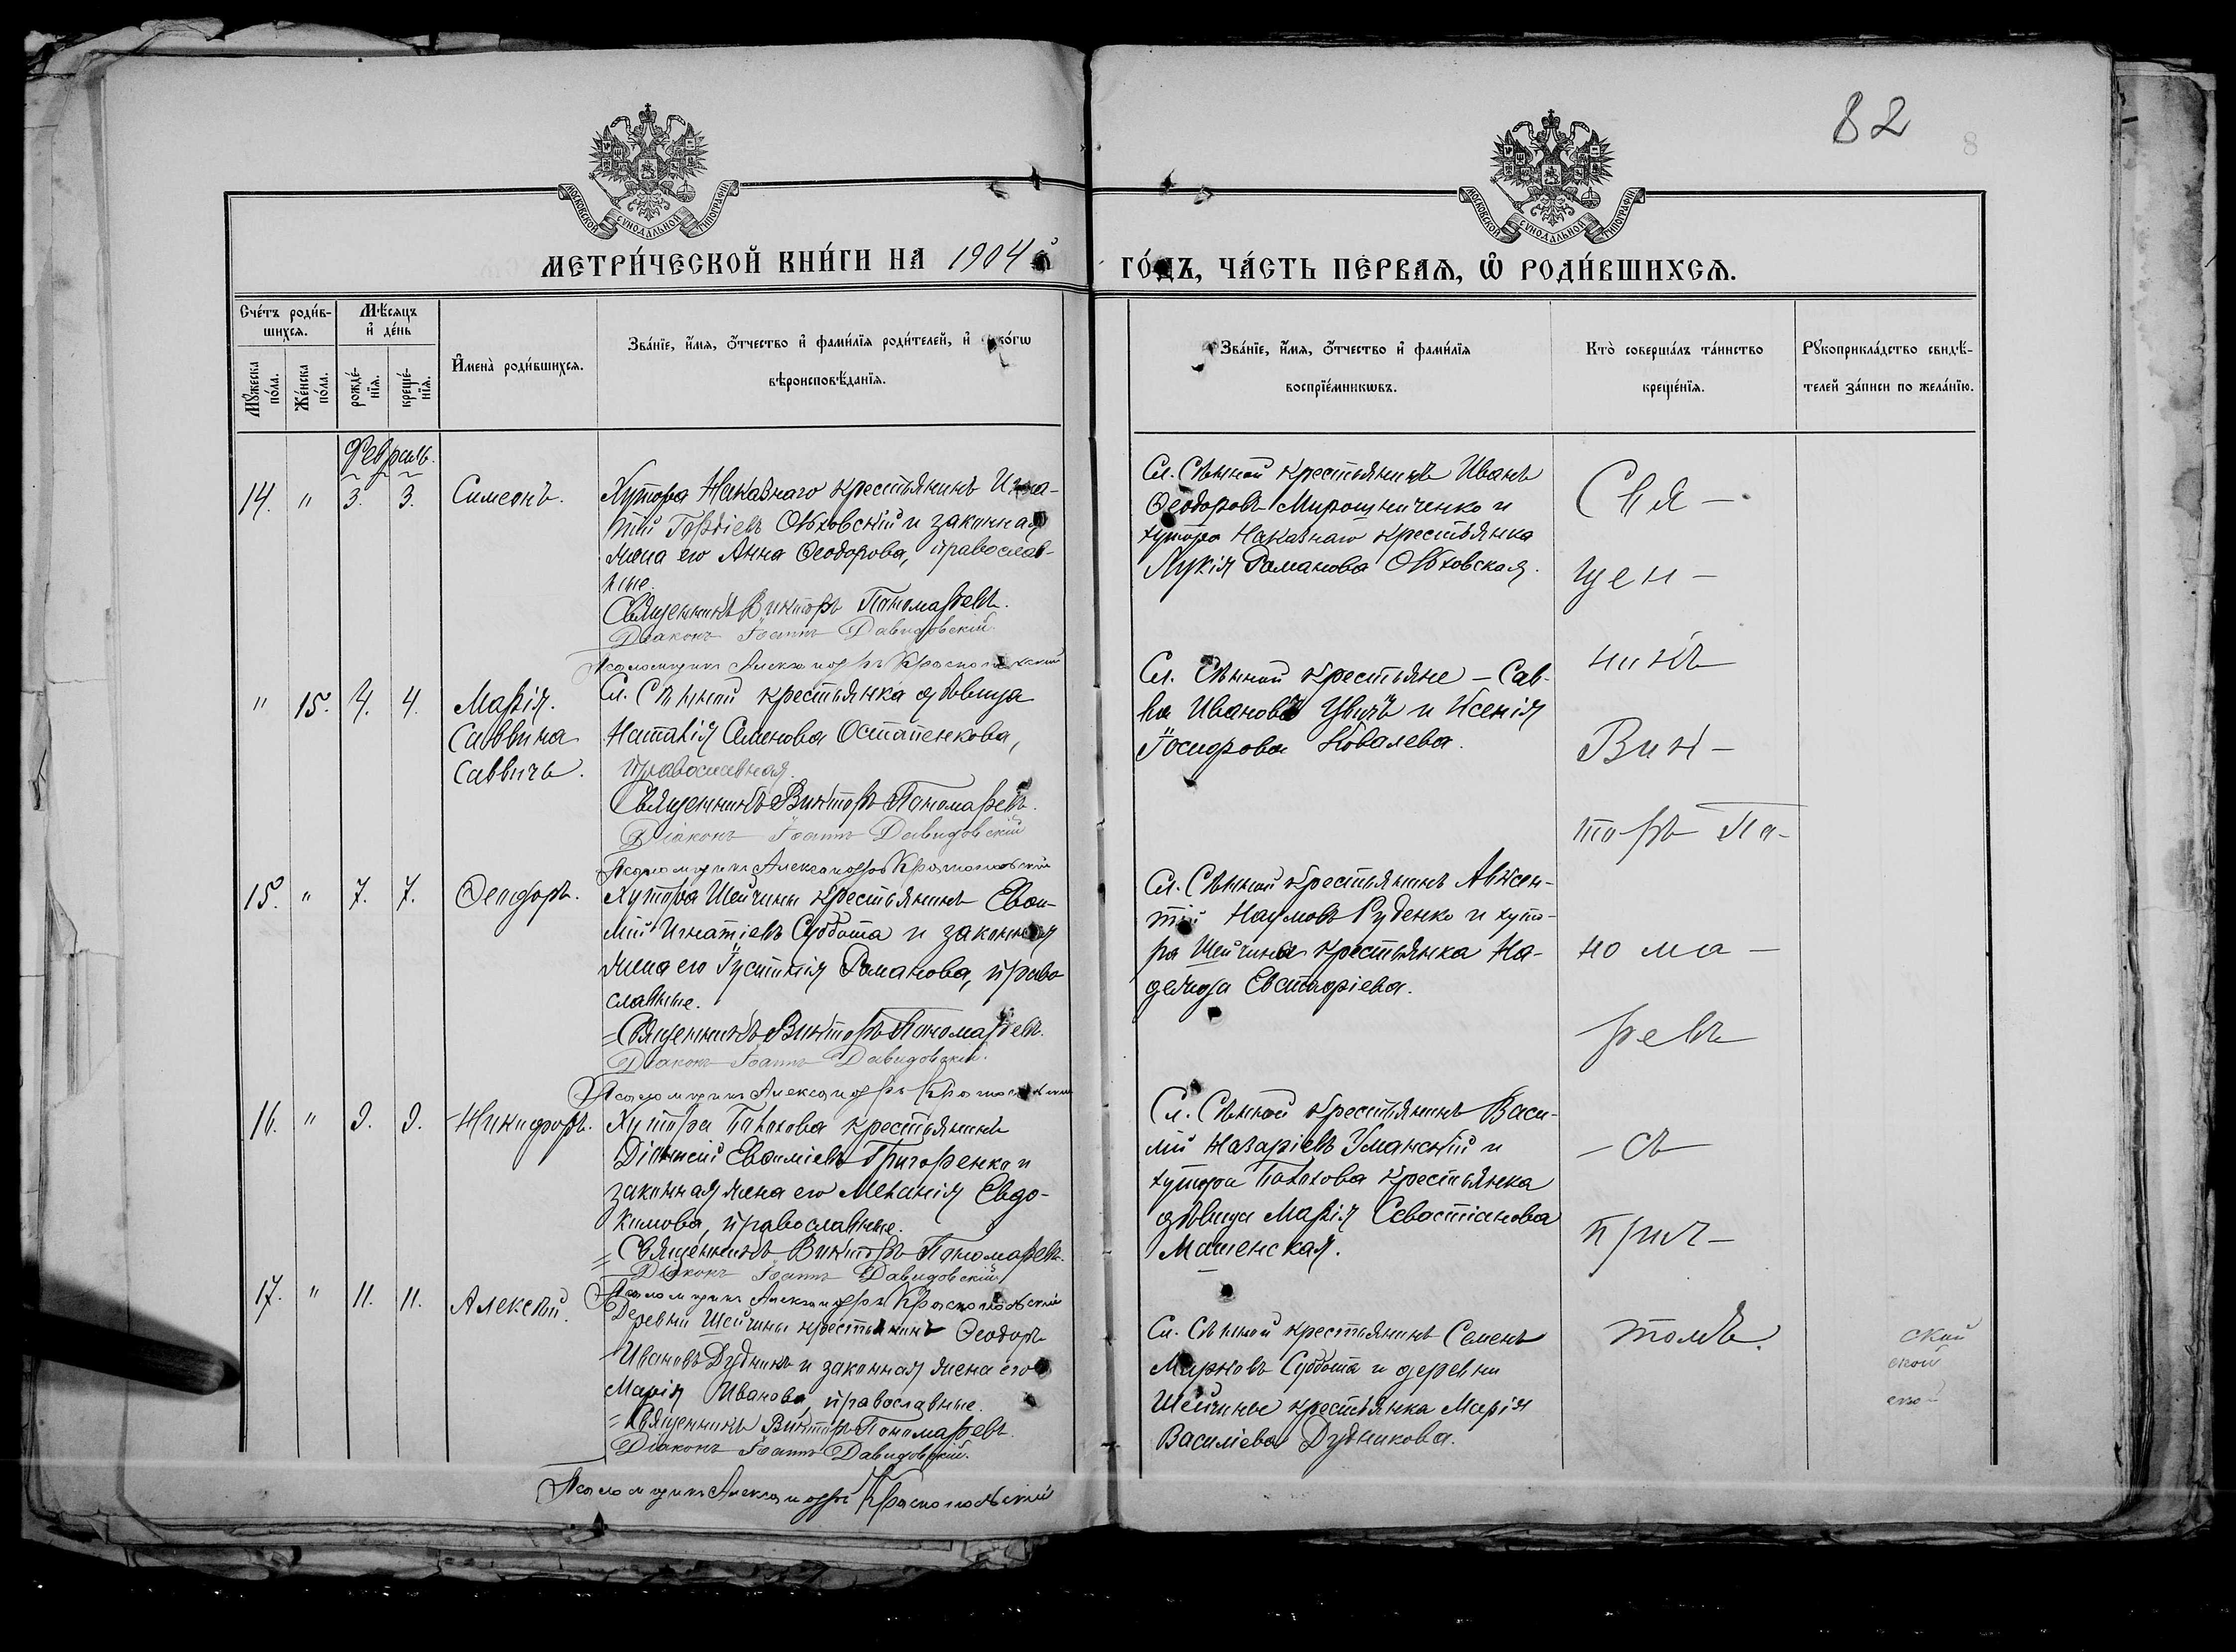 82
8
МОСКОВСКОЙ СѴНОДАЛЬНОЙ ТИПОГРАФІИ
МОСКОВСКОЙ СѴНОДАЛЬНОЙ ТИПОГРАФІИ
МЕТРИ́ЧЕСКОЙ КНИ́ГИ НА 1904 й
ГО́ДЪ, ЧА́СТЬ ПЕ́РВАѦ, Ѡ҆ РОДИ́ВШИХСѦ.
Сче́тъ роди́в-
шихсѧ.
Мꙋ́жеска по́ла.
Же́нска по́ла.
Мѣ́сѧцъ
и҆ де́нь
рожде́-
нїѧ.
креще́-
нїѧ.
И҆мена̀ роди́вшихсѧ.
Зва́нїе, и҆́мѧ, ѻ҆́тчество и҆ фами́лїѧ роди́телей, и҆ ко́гѡ
вѣроисповѣ́данїѧ.
Зва́нїе, и҆́мѧ, ѻ҆́тчество и҆ фами́лїѧ
воспрїе́мникѡвъ.
Кто̀ соверша́лъ та́инство
креще́нїѧ.
Рꙋкоприкла́дство свидѣ́-
телей за́писи по жела́нїю.
Февраль.
14. " 3. 3. Симеонъ.
Хутора Наказнаго крестьянинъ Игна-
тій Гордіевъ Обховскій и законная
жена его Анна Ѳеодорова, православ-
ные.
Священникъ Викторъ Пономаревъ.
Діаконъ Іоаннъ Давидовскій.
Псаломщикъ Александръ Краснопольскій
Сл. Сѣнной крестьянинъ Иванъ
Ѳеодоровъ Мирошниченко и
хутора Наказнаго крестьянка
Лукія Романова Обховская.
" 15. 4. 4. Марія.
Саввина
Саввичъ.
Сл. Сѣнной крестьянка дѣвица
Наталія Семенова Остапенкова,
православная.
Священникъ Викторъ Пономаревъ.
Діаконъ Іоаннъ Давидовскій
Псаломщикъ Александръ Краснопольскій
Сл. Сѣнной крестьяне – Сав-
ва Ивановъ Увичъ и Ксенія
Іосифова Ковалева.
15. " 7. 7. Ѳеодоръ.
Хутора Шейчины крестьянинъ Евѳи-
мій Игнатіевъ Суббота и законная
жена его Іустинія Романова, право-
славные.
Священникъ Викторъ Пономаревъ.
Діаконъ Іоаннъ Давидовскій.
Псаломщикъ Александръ Краснопольскій
Сл. Сѣнной крестьянинъ Авксен-
тій Наумовъ Руденко и хуто-
ра Шейчина крестьянка На-
дежда Евстафіева.
16. " 9. 9. Никифоръ.
Хутора Павлова крестьянинъ
Діонисій Евѳиміевъ Григоренко и
законная жена его Меланія Евдо-
кимова, православные.
Священникъ Викторъ Пономаревъ.
Діаконъ Іоаннъ Давидовскій
Псаломщикъ Александръ Краснопольскій
Сл. Сѣнной крестьянинъ Васи-
лій Назаріевъ Уманскій и
хутора Павлова крестьянка
дѣвица Марія Севастіанова
Машенская.
17. " 11. 11. Алексѣй.
Деревни Шейчины крестьянинъ Ѳеодоръ
Ивановъ Дудникъ и законная жена его
Марія Иванова, православные.
Священникъ Викторъ Пономаревъ.
Діаконъ Іоаннъ Давидовскій.
Псаломщикъ Александръ Краснопольскій
Сл. Сѣнной крестьянинъ Семенъ
Марковъ Суббота и деревни
Шейчины крестьянка Марія
Василіева Дудникова.
Свя-
щен-
никъ
Вик-
торъ По-
нома-
ревъ
– съ
прич-
томъ.